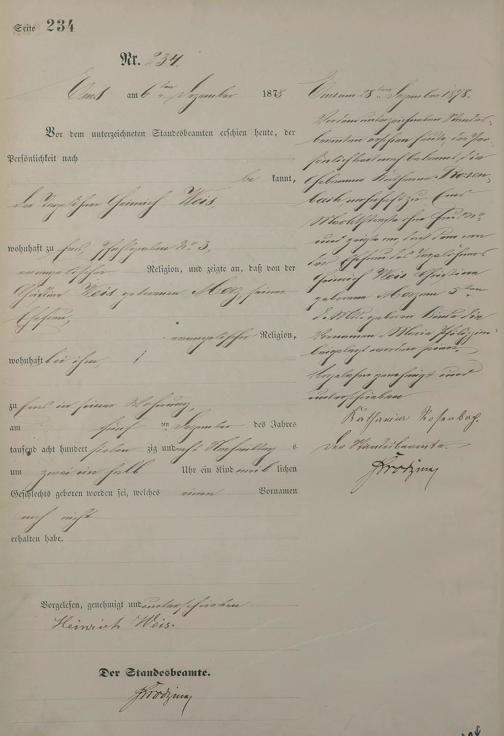 Seite 234
Nr. 234.
Ems am 6ten Dezember 1878
Vor dem unterzeichneten Standesbeamten erschien heute, der
Persönlichkeit nach
be kannt,
der Tagelöhner Heinrich Weis,
wohnhaft zu Ems, No 3,
evangelischer Religion, und zeigte an, daß von der
Weis geborenen seiner
Ehefrau,
evangelischer Religion,
wohnhaft bei ihm
zu Ems in seiner Wohnung,
am fünf ten Dezember des Jahres
tausend acht hundert sieben zig und acht Nachmittag s
um zwei ein halb Uhr ein Kind weib lichen
Geschlechts geboren worden sei, welches einen Vornamen
noch nicht
erhalten habe.
Vorgelesen, genehmigt und unterschrieben
Heinrich Weis.
Der Standesbeamte.
Ems am 28ten Dezember 1878.
Vor dem unterzeichneten Standes-
beamten erschien heute, der Per-
sönlichkeit nach bekannt, die
Hebamme Katharina Rosen-
bach, wohnhaft zu Ems
und zeigte an, daß dem von
der Ehefrau des Tagelöhners
Heinrich Weis, Christine
geborenen am 5ten
d. M. geborenen Kinde die
Vornamen Maria
beigelegt worden seien.
Vorgelesen, genehmigt und
unterschrieben
Katharina Rosenbach.
Der Standesbeamte